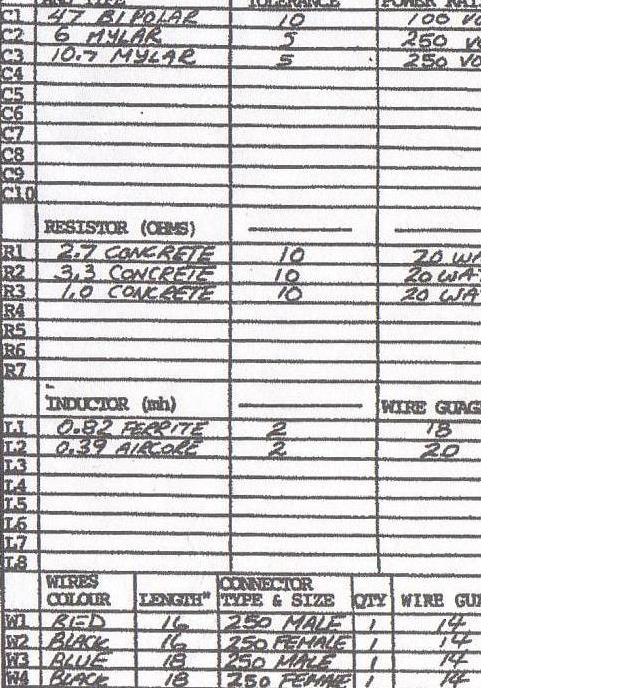 AND TYPE TOLERANCE POWER RAT
C1 47 BIPOLAR 10 100 VO
C2 6 MYLAR 5 250 VO
C3 10.7 MYLAR 5 250 VO
C4
C5
C6
C7
C8
C9
C10
RESISTOR (OHMS)
R1 2.7 CONCRETE 10 20 WA
R2 3.3 CONCRETE 10 20 WAT
R3 1.0 CONCRETE 10 20 WA
R4
R5
R6
R7
INDUCTOR (mh) WIRE GUAGE
L1 0.82 FERRITE 2 18
L2 0.39 AIRCORE 2 20
L3
L4
L5
L6
L7
L8
WIRES CONNECTOR
COLOUR LENGTH" TYPE & SIZE QTY WIRE GUI
W1 RED 16 250 MALE 1 14
W2 BLACK 16 250 FEMALE 1 14
W3 BLUE 18 250 MALE 1 14
W4 BLACK 18 250 FEMALE 1 14